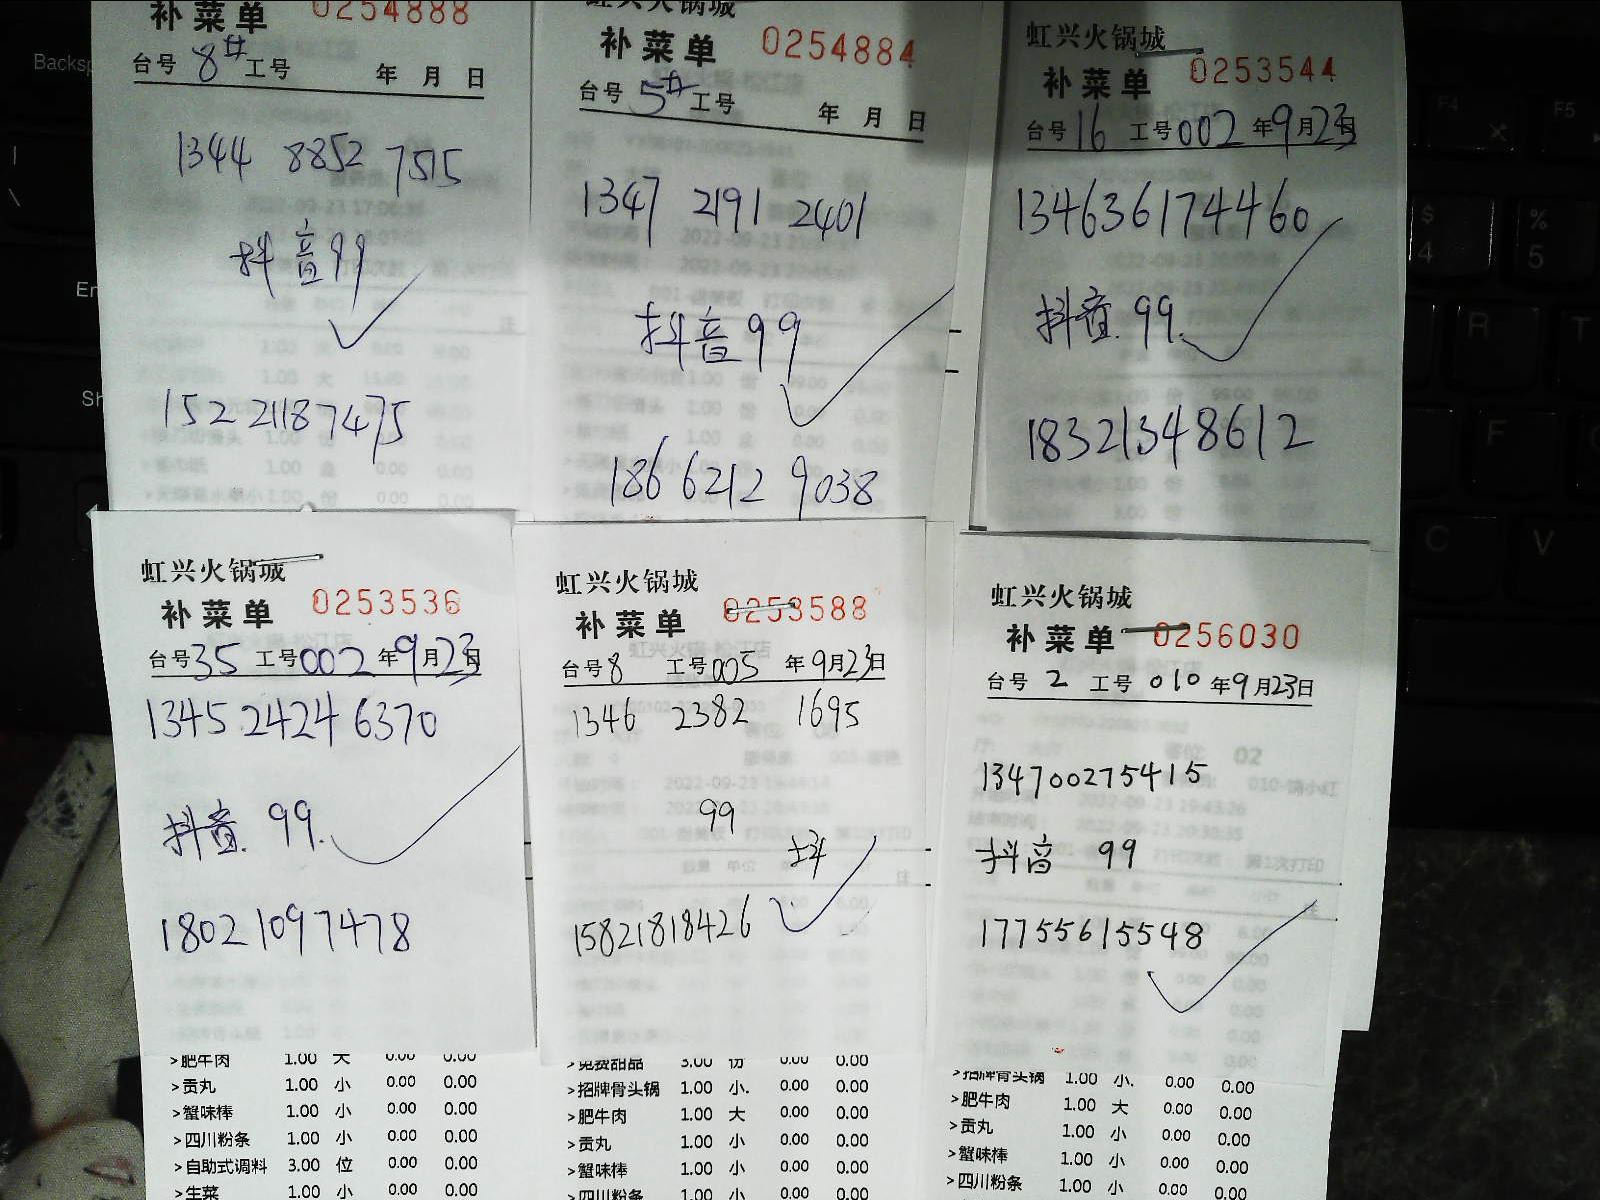 补菜单 0254888
台号 8# 工号 年 月 日
1344 8852 7515
抖音99
152 21187475
虹兴火锅城
补菜单 0254884
台号 5# 工号 年 月 日
1347 2191 2401
抖音99
186 6212 9038
虹兴火锅城
补菜单 0253544
台号 16 工号 002 年 9月 23日
134636174460
抖音. 99.
18321348612
虹兴火锅城
补菜单 0253536
台号 35 工号 002 年 9月 23日
1345 2424 6370
抖音. 99.
18021097478
虹兴火锅城
补菜单 0253588
台号 8 工号 005 年 9月 23日
1346 2382 1695
99
抖
15821818426
虹兴火锅城
补菜单 0256030
台号 2 工号 010 年 9月 23日
134700275415
抖音 99
17755615548
>肥牛肉 1.00 大 0.00 0.00
>贡丸 1.00 小 0.00 0.00
>蟹味棒 1.00 小 0.00 0.00
>四川粉条 1.00 小 0.00 0.00
>自助式调料 3.00 位 0.00 0.00
>生菜 1.00 小 0.00 0.00
>免费甜品 3.00 份 0.00 0.00
>招牌骨头锅 1.00 小. 0.00 0.00
>肥牛肉 1.00 大 0.00 0.00
>贡丸 1.00 小 0.00 0.00
>蟹味棒 1.00 小 0.00 0.00
>四川粉条 1.00 小 0.00 0.00
>招牌骨头锅 1.00 小. 0.00 0.00
>肥牛肉 1.00 大 0.00 0.00
>贡丸 1.00 小 0.00 0.00
>蟹味棒 1.00 小 0.00 0.00
>四川粉条 1.00 小 0.00 0.00
Backsp
F4
F5
$
4
%
5
R
T
F
C
V